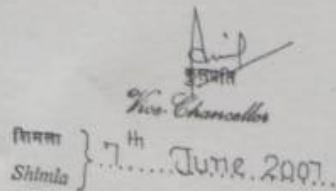 कुलपति
Vice-Chancellor
शिमला
Shimla } 7th June, 2007